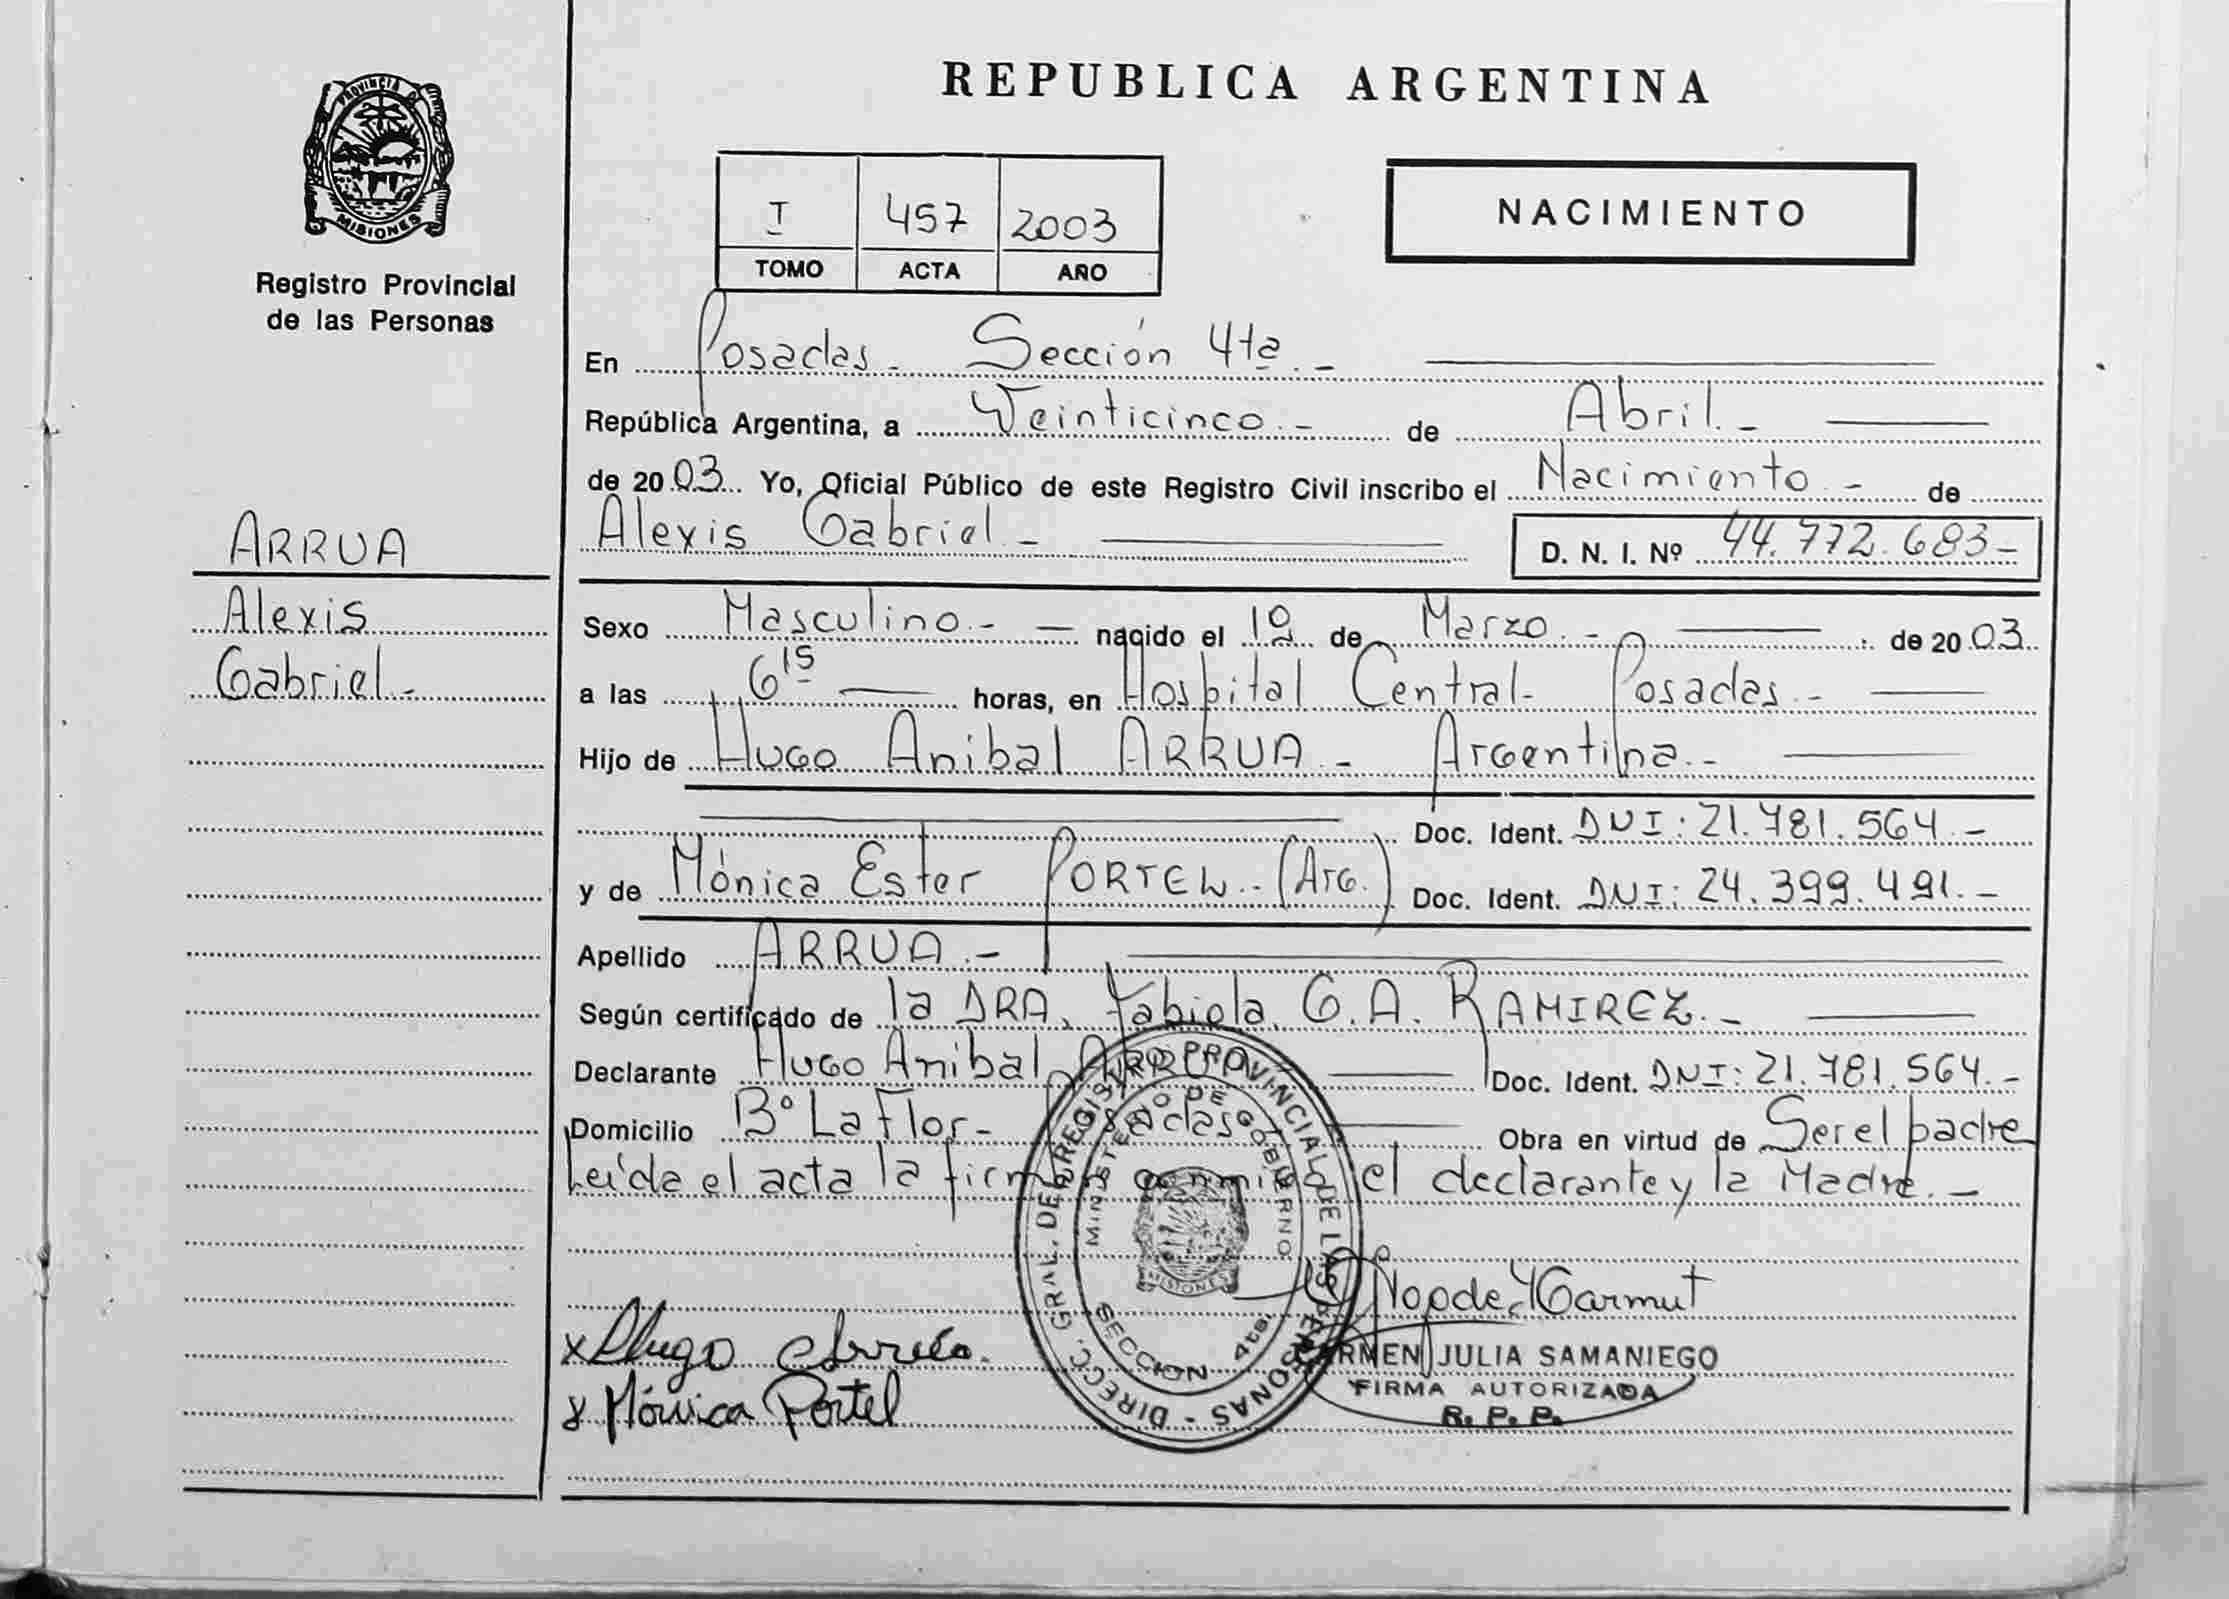 PROVINCIA DE
MISIONES
Registro Provincial
de las Personas
ARRUA
Alexis
Gabriel.-
REPUBLICA ARGENTINA
I 457 2003
TOMO ACTA AÑO
NACIMIENTO
En Posadas.- Sección 4ta.-
República Argentina, a Veinticinco.- de Abril.-
de 2003 Yo, Oficial Público de este Registro Civil inscribo el Nacimiento.- de
Alexis Gabriel.-
D. N. I. Nº 44.772.683-
Sexo Masculino.- nacido el 1º de Marzo.- de 2003
a las 6 15 horas, en Hospital Central- Posadas.-
Hijo de Hugo Anibal ARRUA.- Argentina.-
Doc. Ident. DNI: 21.781.564.-
y de Mónica Ester PORTEL.- (Arg.) Doc. Ident. DNI: 24.399.491.-
Apellido ARRUA.-
Según certificado de la DRA. Fabiola. G.A. RAMIREZ.-
Declarante Hugo Anibal ARRUA Doc. Ident. DNI: 21.781.564.-
Domicilio Bº La Flor- Posadas- Obra en virtud de Ser el padre
Leída el acta la firman conmigo el declarante y la Madre.-
DIRECC. GRAL. DEL REGISTRO PROVINCIAL DE LAS PERSONAS -
MINISTERIO DE GOBIERNO
MISIONES
SECCION 4ta.
x Hugo Arrúa.
x Mónica Portel
CARMEN JULIA SAMANIEGO
FIRMA AUTORIZADA
R. P. P.